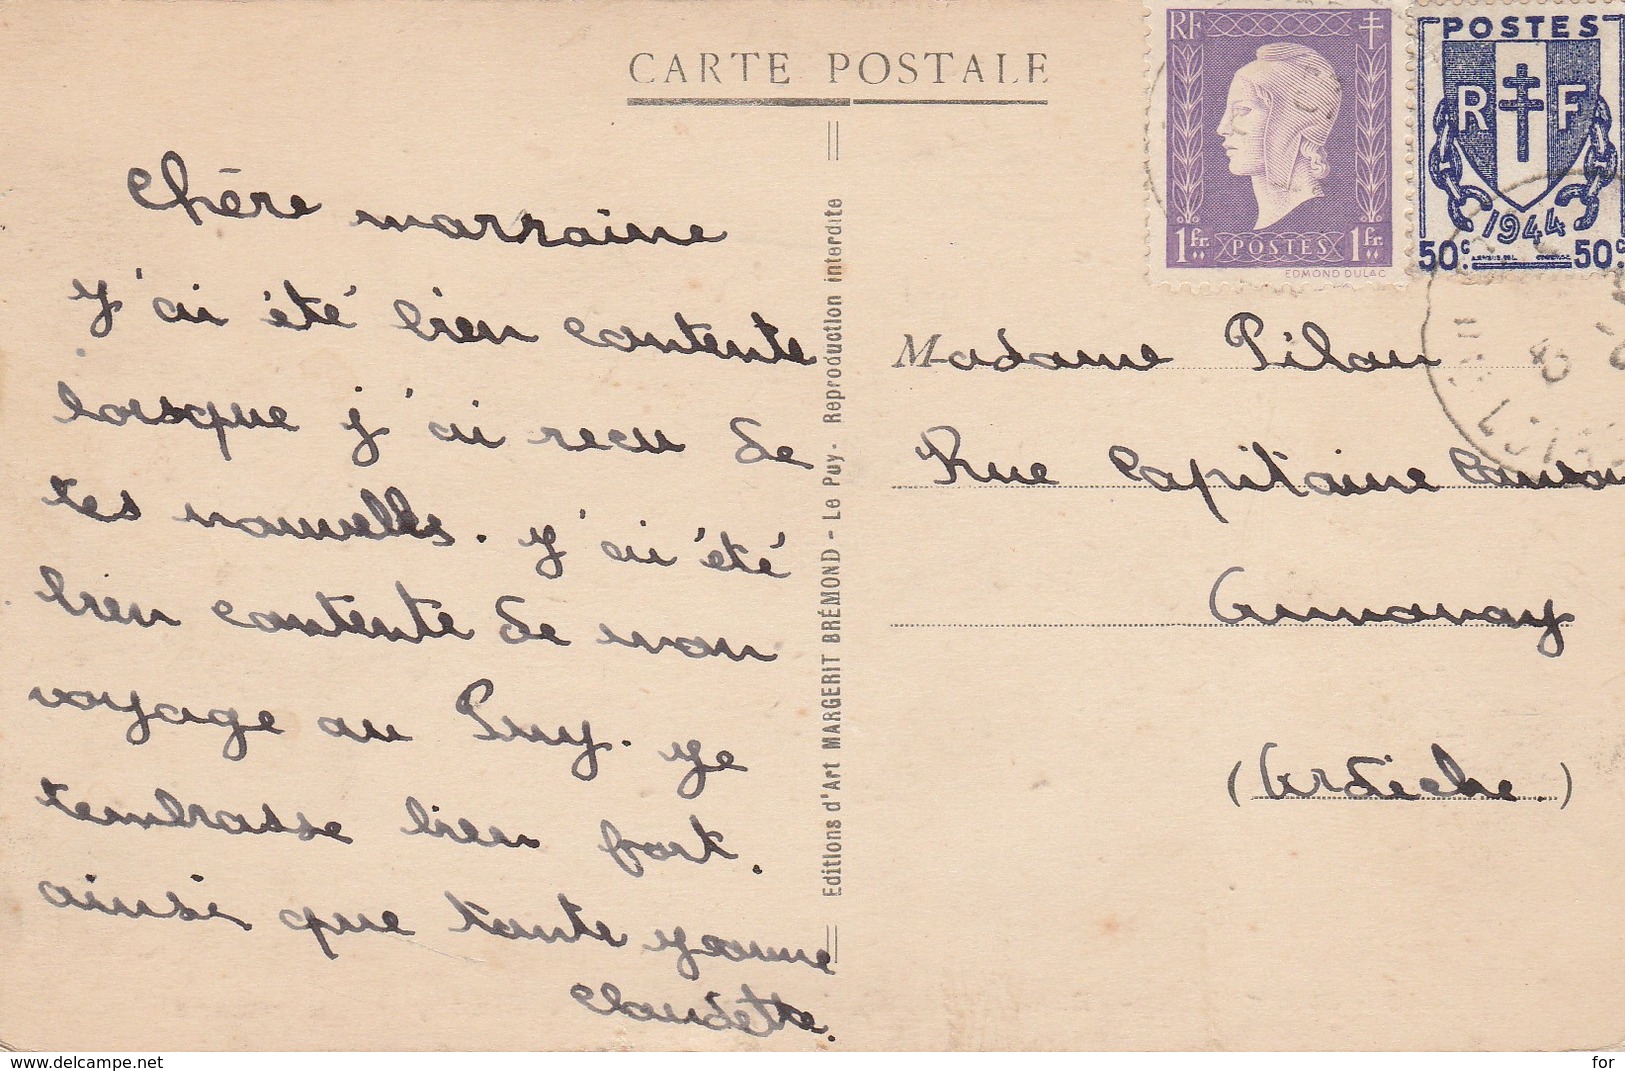 CARTE POSTALE
RF
1 fr. POSTES 1 fr.
EDMOND DULAC
POSTES
R F
1944
50c. 50c
Chère marraine
J'ai été bien contente
lorsque j'ai recu de
tes nouvelles. J'ai été
bien contente de mon
voyage au Puy. Je
t'embrasse bien fort.
ainsi que tante Yvonne
Claudette.
Editions d'Art MARGERIT BRÉMOND - Le Puy - Reproduction interdite
Madame Pilau
Rue Capitaine
Annonay
(Ardèche.)
www.delcampe.net
for